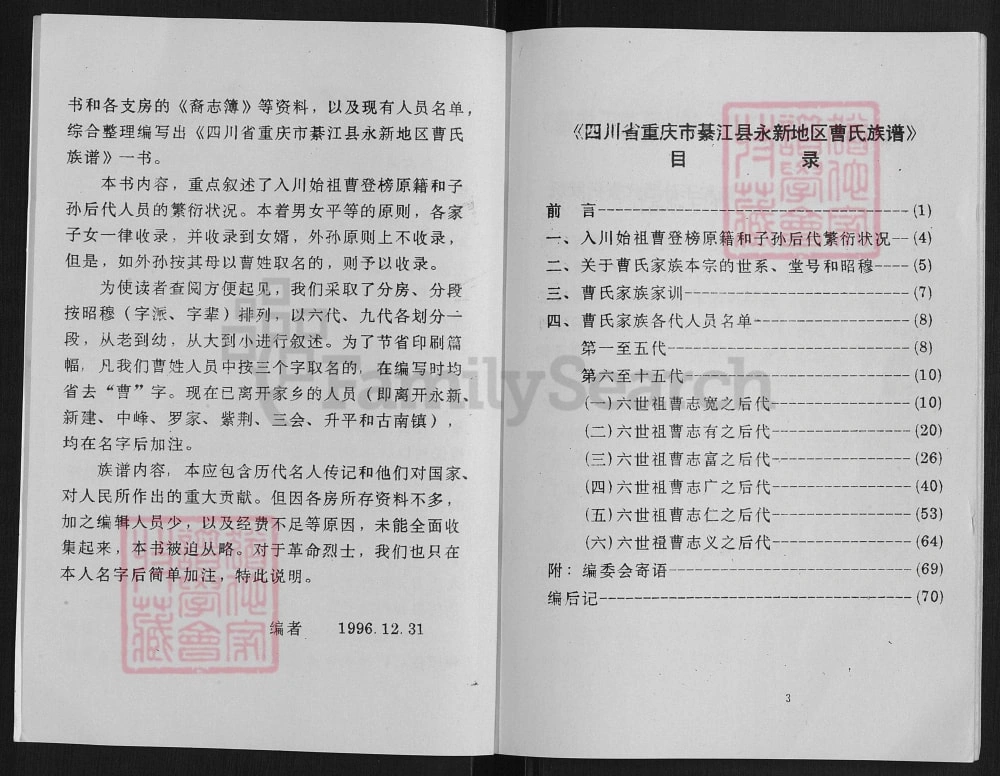 书和各支房的《裔志簿》等资料，以及现有人员名单，
综合整理编写出《四川省重庆市綦江县永新地区曹氏
族谱》一书。
本书内容，重点叙述了入川始祖曹登榜原籍和子
孙后代人员的繁衍状况。本着男女平等的原则，各家
子女一律收录，并收录到女婿，外孙原则上不收录，
但是，如外孙按其母以曹姓取名的，则予以收录。
为使读者查阅方便起见，我们采取了分房、分段
按昭穆（字派、字辈）排列，以六代、九代各划分一
段，从老到幼，从大到小进行叙述。为了节省印刷篇
幅，凡我们曹姓人员中按三个字取名的，在编写时均
省去“曹”字。现在已离开家乡的人员（即离开永新、
新建、中峰、罗家、紫荆、三会、升平和古南镇），
均在名字后加注。
族谱内容，本应包含历代名人传记和他们对国家、
对人民所作出的重大贡献。但因各房所存资料不多，
加之编辑人员少，以及经费不足等原因，未能全面收
集起来，本书被迫从略。对于革命烈士，我们也只在
本人名字后简单加注，特此说明。
编者 1996.12.31
《四川省重庆市綦江县永新地区曹氏族谱》
目 录
前 言------------------------(1)
一、入川始祖曹登榜原籍和子孙后代繁衍状况--(4)
二、关于曹氏家族本宗的世系、堂号和昭穆----(5)
三、曹氏家族家训------------------------(7)
四、曹氏家族各代人员名单----------------(8)
第一至五代------------------------(8)
第六至十五代----------------------(10)
(一)六世祖曹志宽之后代--------------(10)
(二)六世祖曹志有之后代--------------(20)
(三)六世祖曹志富之后代--------------(26)
(四)六世祖曹志广之后代--------------(40)
(五)六世祖曹志仁之后代--------------(53)
(六)六世祖曹志义之后代--------------(64)
附：编委会寄语------------------------(69)
编后记------------------------------(70)
3
FamilySearch